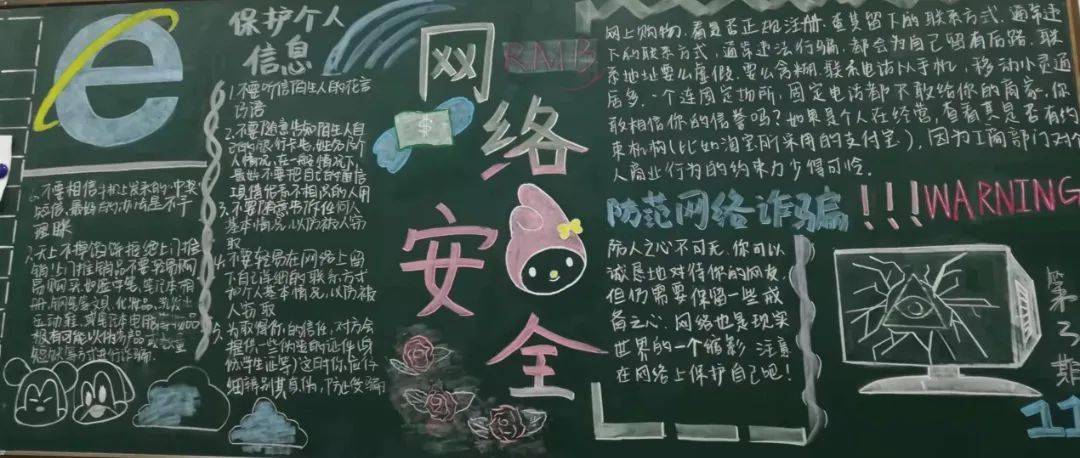 保护个人
信息
1.不要听信陌生人的花言
巧语
2.不要随意告知陌生人自
己的银行卡号,姓名等个
人情况,在一般情况下,
最好不要把自己的通信
工具借给者不相识的人用
3.不要随意告诉任何人
基本情况,以防被人窃
取
4.不要轻易在网络上留
下自己详细的联系方式
和个人基本情况,以防被
人窃取
5.为取得你的信任,对方会
提供一些伪造的证件(身
份学生证等)这时你应仔
细辨别其真伪,防止受骗
6.不要相信手机上发来的中奖
短信,最好的办法是不予
理睬
7.天上不掉馅饼拒绝上门推
销,上门推销品不要轻易购
易购买如
册,钢笔文具,化妆品,
运动鞋,或笔记本电脑等
极有可能以伪劣产品或
短
网
络
安
全
RMB
$
网上购物,看是否正规注册,查其留下的联系方式,通常违
下的联系方式,通常违法行骗,都会为自己留有后路,联
系地址要么虚假,要么含糊,联系电话以手机,移动小灵通
居多,一个连固定场所,固定电话都不敢给你的商家,你
敢相信你的信誉吗?如果是个人在经营,查看其是否有约
束机构(比如淘宝所采用的支付宝),因为工商部门对个
人商业行为的约束力少得可怜.
防范网络诈骗!!!WARNING
防人之心不可无,你可以
诚恳地对待你的网友,
但仍需要保留一些戒
备之心.网络也是现实
世界的一个缩影,注意
在网络上保护自己吧!
第3期
11